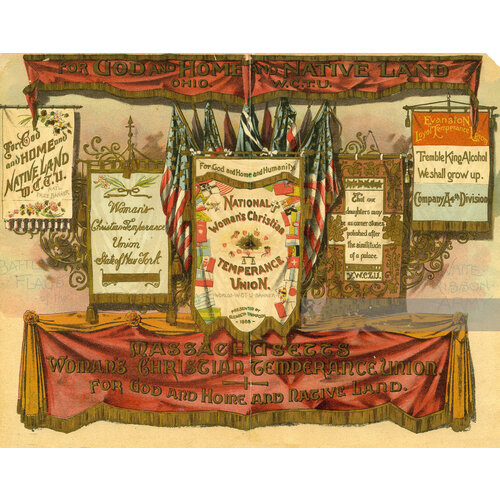 FOR GOD AND HOME AND NATIVE LAND
OHIO W.C.T.U.
For God
and HOME and
NATIVE LAND
W.C.T.U.
Woman's
Christian Temperance
Union
State of New York
For God and Home and Humanity
NATIONAL
Woman's Christian
TEMPERANCE
UNION.
WORLD'S W.C.T.U. BANNER
PRESENTED BY
1888
That our
daughters may
be as corner-stones
polished after
the similitude
of a palace.
Y.W.C.T.U.
EVANSTON
Loyal Temperance Legion
Tremble King Alcohol
We shall grow up.
Company A 4th Division
MASSACHUSETTS
WOMAN'S CHRISTIAN TEMPERANCE UNION
FOR GOD AND HOME AND NATIVE LAND.